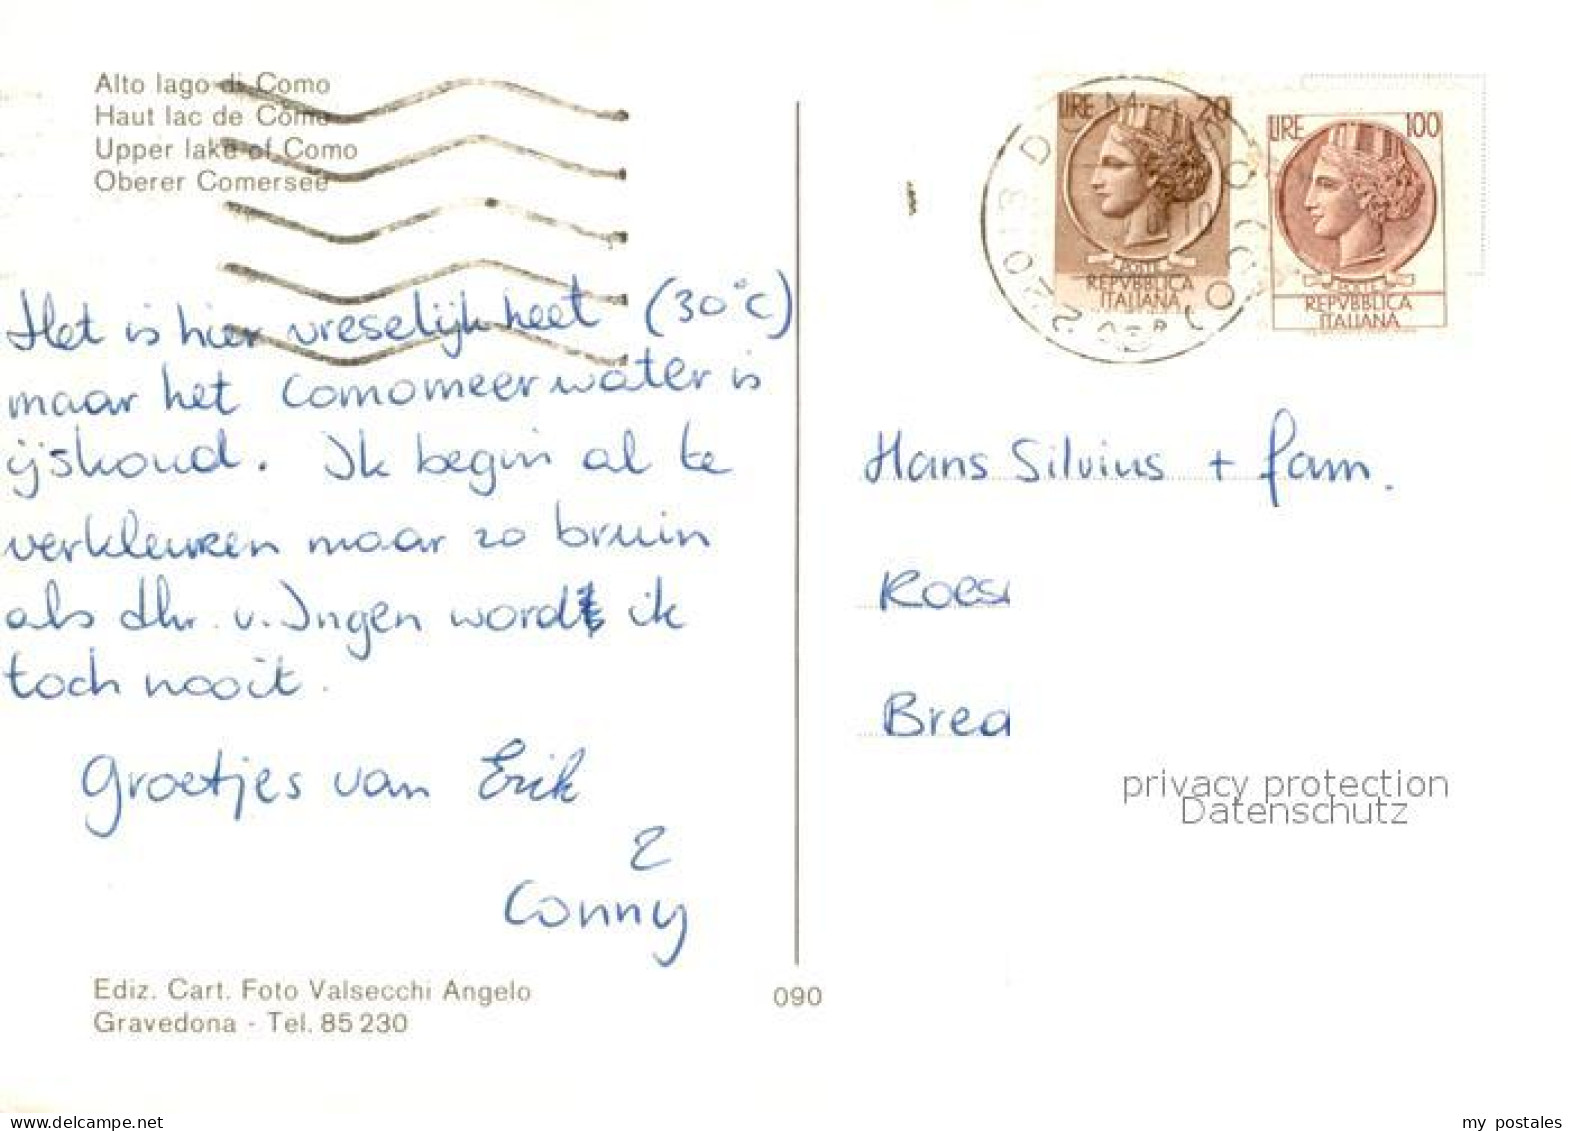 Alto lago di Como
Haut lac de Côme
Upper lake of Como
Oberer Comersee
Het is hier vreselijk heet (30°C)
maar het Comomeerwater is
ijskoud. Ik begin al te
verkleuren maar zo bruin
als dhr. v. Ingen word ik
toch nooit.
Groetjes van Erik
&
Conny
Ediz. Cart. Foto Valsecchi Angelo
Gravedona - Tel. 85 230
090
LIRE 20
POSTE
REPVBBLICA
ITALIANA
LIRE 100
POSTE
REPVBBLICA
ITALIANA
22010 DOMASO (CO)
Hans Silvius + fam.
Roes
Bred
privacy protection
Datenschutz
delcampe.net
my_postales